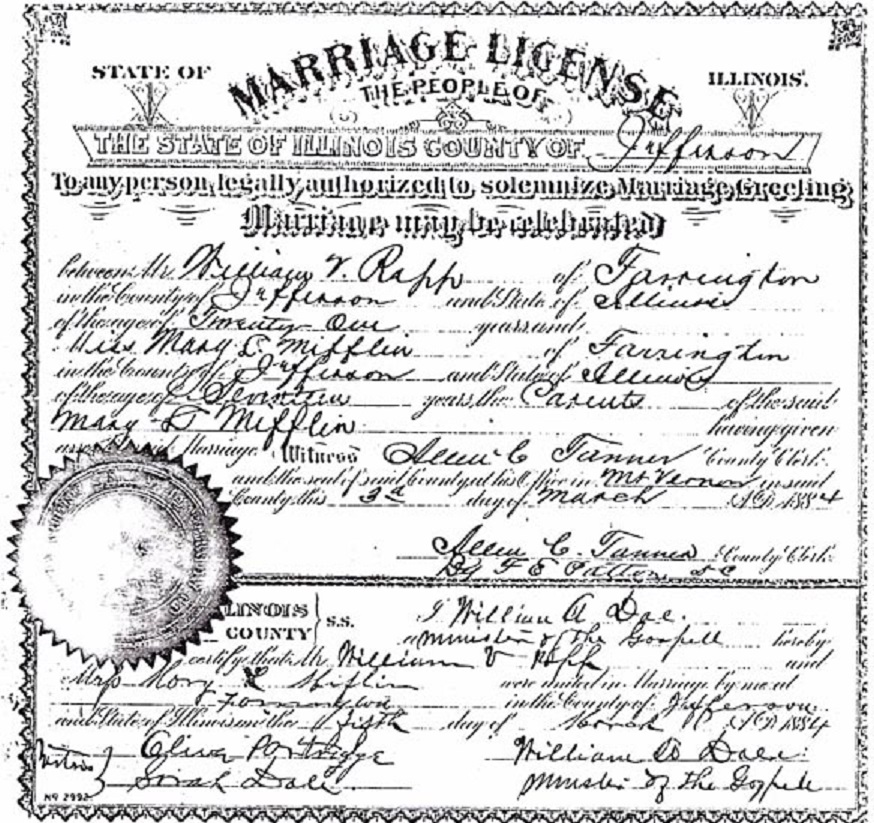 MARRIAGE LICENSE
STATE OF ILLINOIS.
THE PEOPLE OF
THE STATE OF ILLINOIS COUNTY OF Jefferson
To any person legally authorized to solemnize Marriage, Greeting
Marriage may be celebrated
between Mr. William V. Rapp of Farrington
in the County of Jefferson and State of Illinois
of the age of Twenty One years and
Miss Mary E Mifflin of Farrington
in the County of Jefferson and State of Illinois
of the age of Seventeen years, the Parents of the said
Mary E Mifflin having given
Marriage. Witness Allen C Tanner County Clerk
and the seal of said County at his Office in Mt Vernon in said
County this 3d day of March A.D. 1884
Allen C. Tanner County Clerk
By F E Patton
LINOIS
COUNTY } S.S. I William A Dale
a minister of the Gospell hereby
certify that Mr. William V Rapp and
Mary E Miflin were united in Marriage by me at
in the County of Jefferson
and State of Illinois on the fifth day of March A.D. 1884
Witness } Oliver Partridge William A Dale
Sarah Dale minister of the Gospell
No 2992